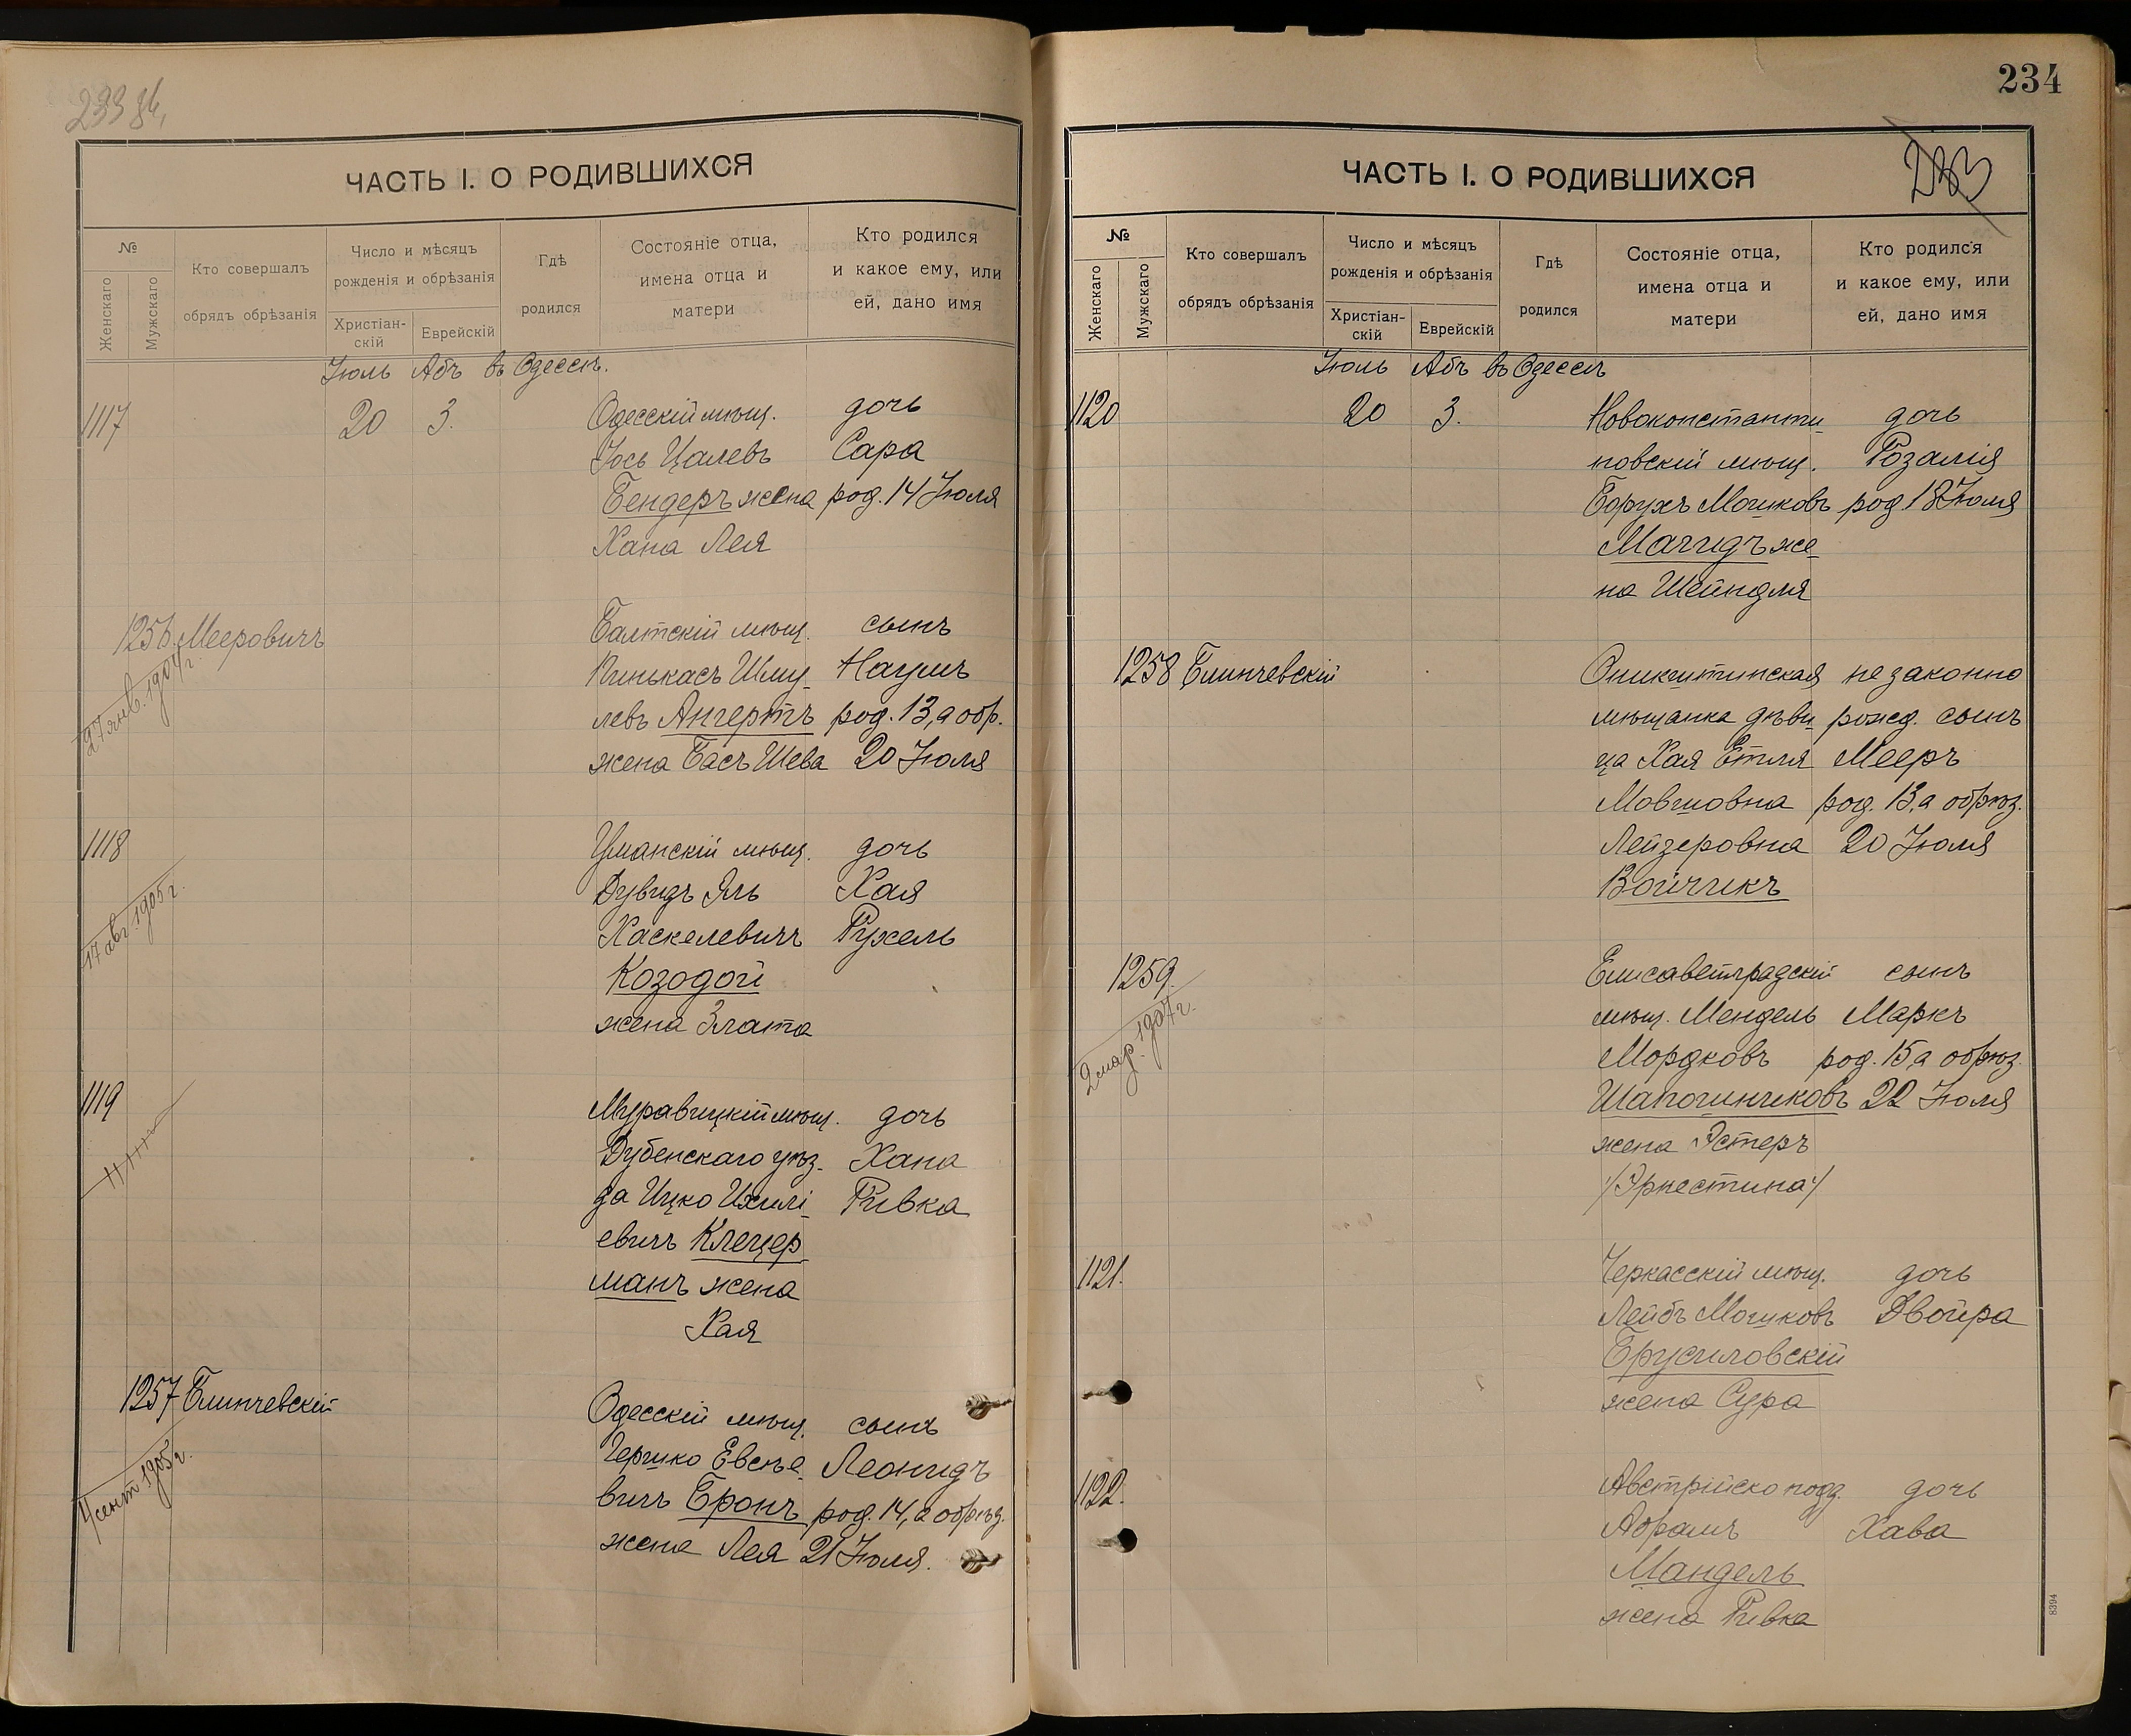 233 об.
ЧАСТЬ I. О РОДИВШИХСЯ
№
Женскаго
Мужскаго
Кто совершалъ
обрядъ обрѣзанія
Число и мѣсяцъ
рожденія и обрѣзанія
Христіан-
скій
Еврейскій
Гдѣ
родился
Состояніе отца,
имена отца и
матери
Кто родился
и какое ему, или
ей, дано имя
Іюль Абъ въ Одессѣ.
1117 20 3. Одесскій мѣщ. дочь
Іось Цалевъ Сара
Бендеръ жена род. 14 Іюля
Хана Лея
1256. Мееровичъ Балтскій мѣщ. сынъ
27 янв. 1904 г.
Пинькасъ Шму- Наумъ
левъ Ангертъ род. 13, а обр.
жена Басъ Шева 20 Іюля
1118 Уманскій мѣщ. дочь
17 авг. 1905 г.
Дувидъ Эль Хая
Хаскелевичъ Рухель
Козодой
жена Злата
1119 Муравицкій мѣщ. дочь
Дубенскаго уѣз- Хана
да Ицко Ихилі- Ривка
евичъ Клецер
манъ жена
Хая
1257 Блинчевскій Одесскій мѣщ. сынъ
4 сент 1905 г.
Гершко Евсѣе- Леонидъ
вичъ Бронъ род. 14, а обрѣз.
жена Лея 21 Іюля.
234
233
ЧАСТЬ I. О РОДИВШИХСЯ
№
Женскаго
Мужскаго
Кто совершалъ
обрядъ обрѣзанія
Число и мѣсяцъ
рожденія и обрѣзанія
Христіан-
скій
Еврейскій
Гдѣ
родился
Состояніе отца,
имена отца и
матери
Кто родился
и какое ему, или
ей, дано имя
Іюль Абъ въ Одессѣ
1120 20 3. Новоконстанти- дочь
новскій мѣщ. Розалія
Борухъ Мошковъ род 18 Іюля
Маггидъ же-
на Шейндля
1258 Блинчевскій Оникштинская незаконно
мѣщанка дѣви- рожд. сынъ
ца Хая Етля Мееръ
Мовшовна род. 13, а обрѣз.
Лейзеровна 20 Іюля
Войчикъ
1259. Елисаветградскій сынъ
2 мар. 1907 г.
мѣщ. Мендель Маркъ
Мордковъ род. 15, а обрѣз.
Шапочниковъ 22 Іюля
жена Эстеръ
/Эрнестина/
1121. Черкасскій мѣщ. дочь
Лейбъ Мошковъ Двойра
Брусиловскій
жена Сура
1122. Австрійско подд. дочь
Абрамъ Хава
Мандель
жена Ривка
8394